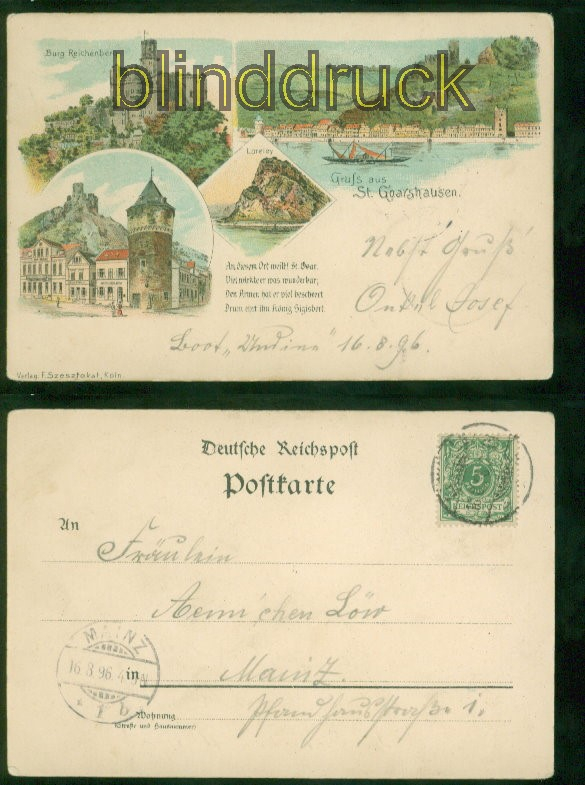 blinddruck
Burg Reichenberg
Loreley
Gruß aus
St. Goarshausen.
An diesem Ort weilt' St. Goar,
Viel wirkte er was wunderbar;
Den Armen hat er viel bescheert
Drum ehrt ihn König Sigisbert.
Nebst Gruß
Onkel Josef
Boot "Undine" 16.8.96.
Verlag. F. Szesztokat, Köln
Deutsche Reichspost
Postkarte
5
REICHSPOST
An
Fräulein
Aennchen Löw
MAINZ
16 8 96 4
in
Mainz.
Wohnung
(Straße und Hausnummer)
Pfandhausstraße 1.